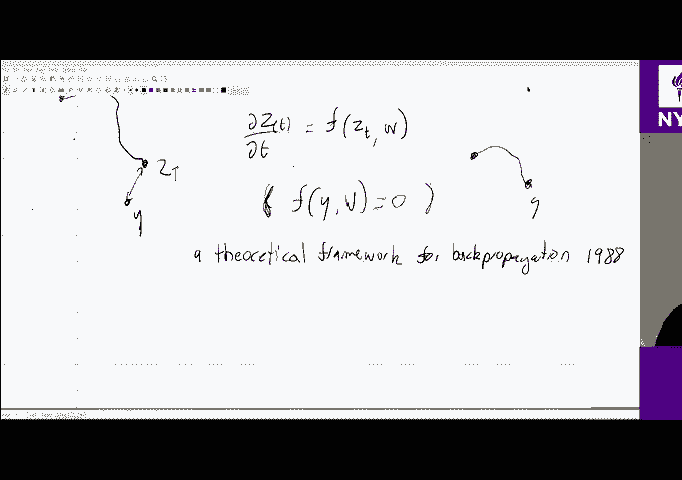 ∂Z(t)/∂t = f(Z_t, W)
Z_T
y
( f(y, W) = 0 )
y
a theocetical framework for backpropagation 1988
NY